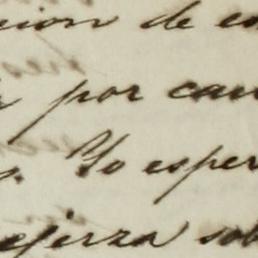 cion de es
por cau
Yo esper
ejerza sob